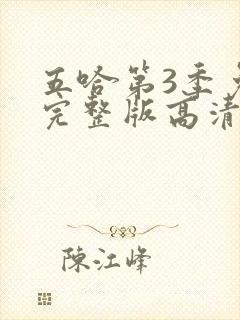 五哈第3季
完整版高清
陳江峰